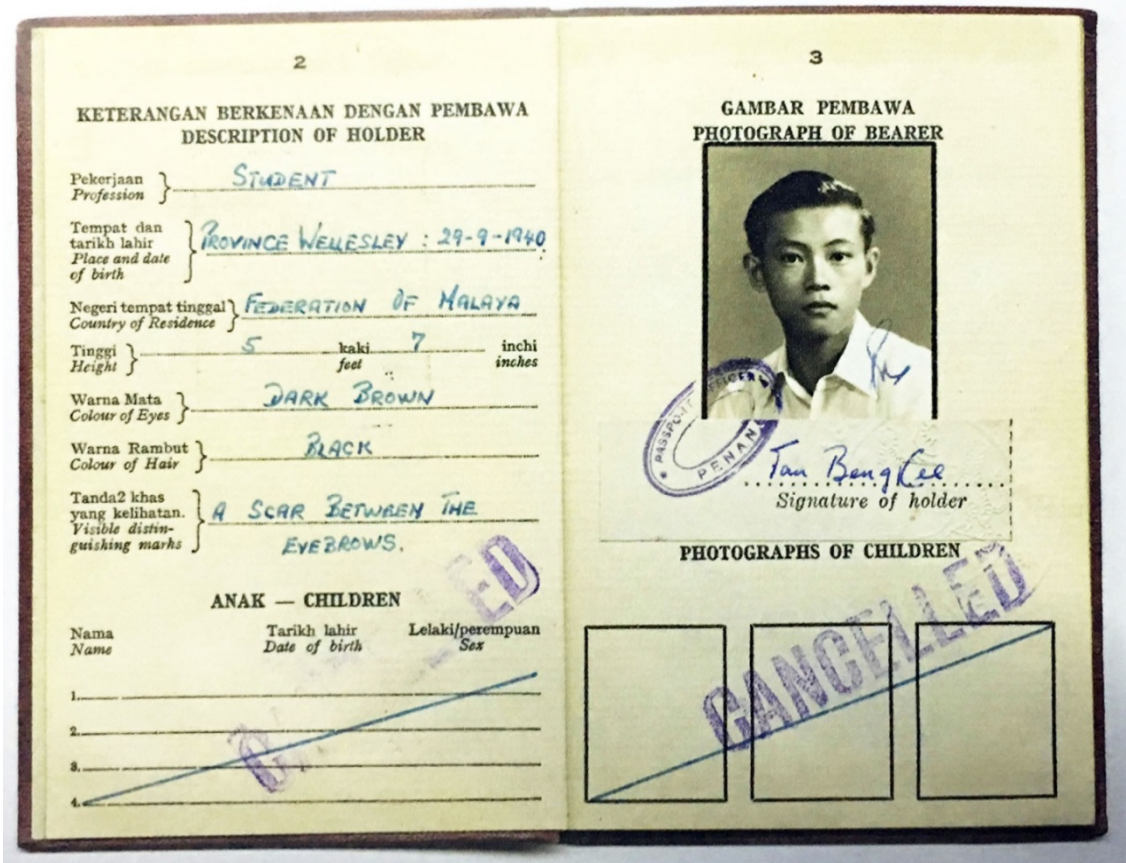 2
KETERANGAN BERKENAAN DENGAN PEMBAWA
DESCRIPTION OF HOLDER
Pekerjaan
Profession
STUDENT
Tempat dan
tarikh lahir
Place and date
of birth
PROVINCE WELLESLEY : 29-9-1940
Negeri tempat tinggal
Country of Residence
FEDERATION OF MALAYA
Tinggi
Height
5 kaki 7 inchi
feet inches
Warna Mata
Colour of Eyes
DARK BROWN
Warna Rambut
Colour of Hair
BLACK
Tanda2 khas
yang kelihatan.
Visible distin-
guishing marks
A SCAR BETWEEN THE
EYEBROWS.
ANAK — CHILDREN
Nama Tarikh lahir Lelaki/perempuan
Name Date of birth Sex
1.
2.
3.
4.
3
GAMBAR PEMBAWA
PHOTOGRAPH OF BEARER
PASSPORT OFFICER
PENANG
Tan Beng Kee
Signature of holder
PHOTOGRAPHS OF CHILDREN
CANCELLED